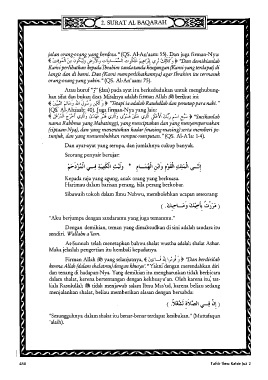 2. SURAT AL BAQARAH
jalan orang-orang yang berdosa." (QS. Al-An'aam: 55). Dan juga firman-Nya:
"Dan demikianlah
Kami perlihatkan kepada Ibrahim tanda-tanda keagungan (Kami yang terdapat) di
langit dan di bumi. Dan (Kami memperlihatkannya) agar Ibrahim itu termasuk
orang-orang yang yakin." (QS. Al-An'aam: 75).
Atau huruf "و" (dan) pada ayat itu berkedudukan untuk menghubung-
kan sifat dan bukan dzat. Misalnya adalah firman Allah berikut ini:
"Tetapi ia adalah Rasulullah dan penutup para nabi."
(QS. Al-Ahzaab: 40). Juga firman-Nya yang lain:
"Sucikanlah
nama Rabbmu yang Mahatinggi, yang menciptakan dan yang menyempurnakan
(ciptaan-Nya), dan yang menentukan kadar (masing-masing) serta memberi pe-
tunjuk, dan yang menumbuhkan rumput-rumputan." (QS. Al-A'la: 1-4).
Dan ayat-ayat yang serupa, dan jumlahnya cukup banyak.
Seorang penyair berujar:
إِلَى الْمَلِكِ الْقَرْمِ وَابْنِ الْهُمَامِ * وَلَيْثِ الْكَتِيبَةِ فِي الْمُزْدَحَمْ
Kepada raja yang agung, anak orang yang berkuasa.
Harimau dalam barisan perang, bila perang berkobar.
Sibawaih tokoh dalam Ilmu Nahwu, membolehkan ucapan seseorang:
( مَرَرْتُ بِأَخِيكَ وَصَاحِبِكَ )
"Aku berjumpa dengan saudaramu yang juga temanmu."
Dengan demikian, teman yang dimaksudkan di sini adalah saudara itu
sendiri. Wallahu a'lam.
As-Sunnah telah menetapkan bahwa shalat wustha adalah shalat Ashar.
Maka jelaslah pengertian itu kembali kepadanya.
Firman Allah yang selanjutnya, ﴿ وَقُومُوا لِلَّهِ قَانِتِينَ ﴾ "Dan berdirilah
karena Allah (dalam shalatmu) dengan khusyu'." Yakni dengan merendahkan diri
dan tenang di hadapan-Nya. Yang demikian itu mengharuskan tidak berbicara
dalam shalat, karena bertentangan dengan kekhusyu'an. Oleh karena itu, tat-
kala Rasulullah tidak menjawab salam Ibnu Mas'ud, karena beliau sedang
menjalankan shalat, beliau memberikan alasan dengan bersabda:
( إِنَّ فِي الصَّلَاةِ لَشُغْلًا. )
"Sesungguhnya dalam shalat itu benar-benar terdapat kesibukan." (Muttafaqun
'alaih).
Tafsir Ibnu Katsir Juz 2